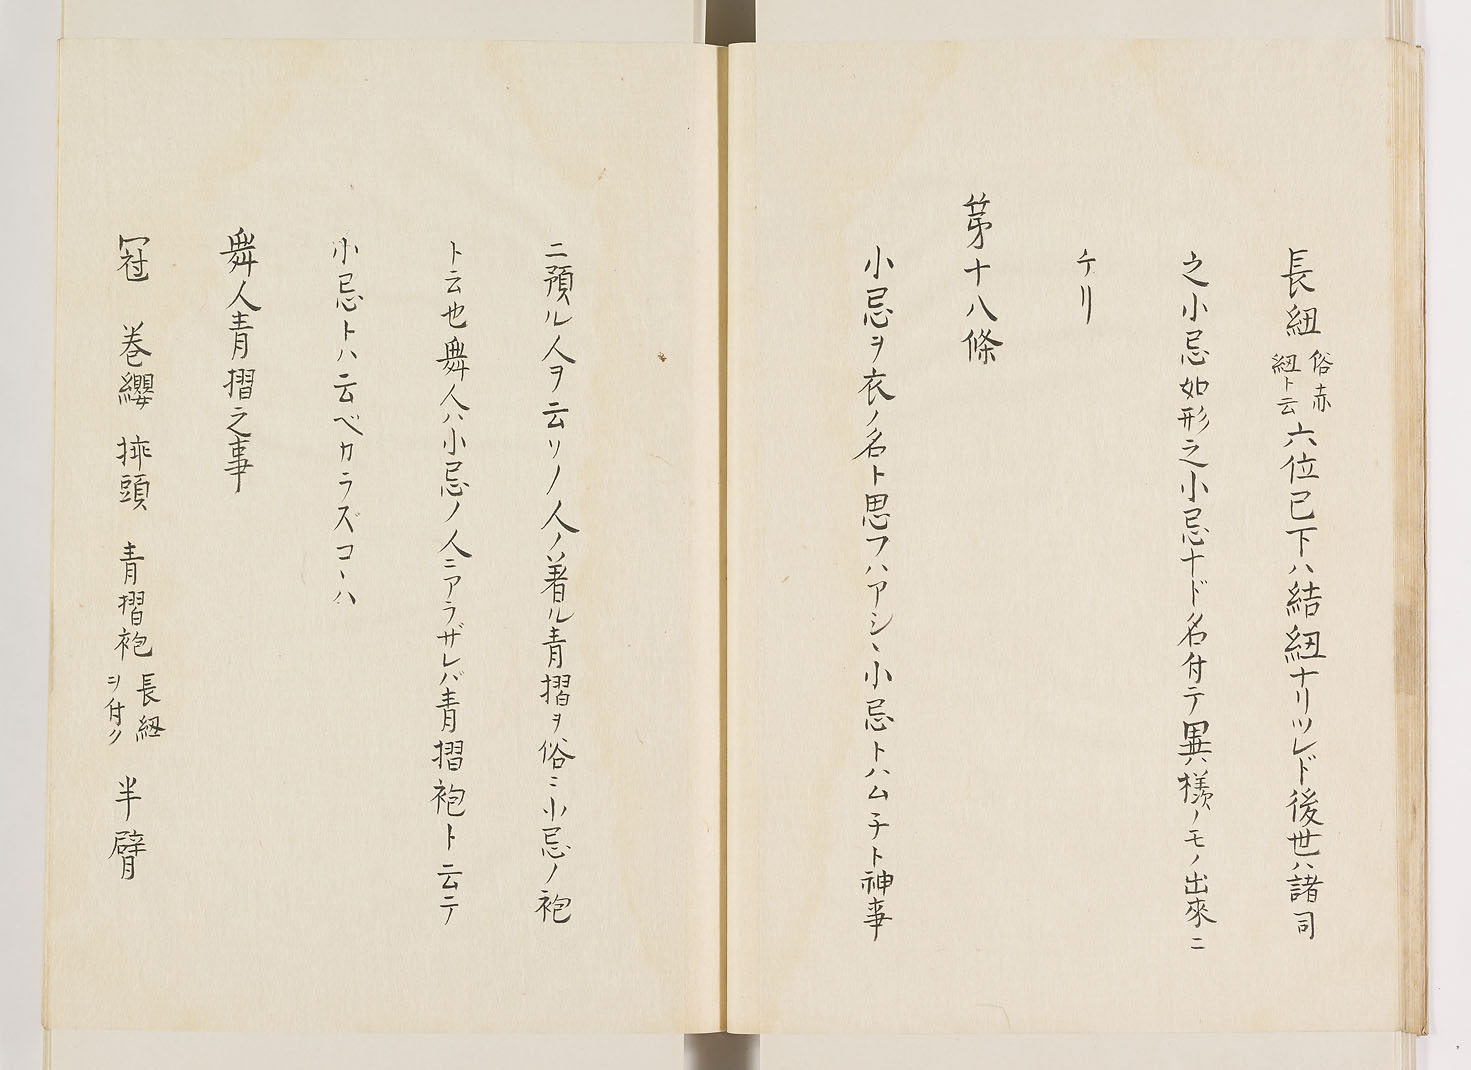 長紐 俗赤紐ト云 六位已下ハ結紐ナリツレド後世ハ諸司
之小忌如形之小忌ナド名付テ異樣ノモノ出來ニ
ケリ
第十八條
小忌ヲ衣ノ名ト思フハアシヽ小忌トハムチト神事
ニ預ル人ヲ云リノ人ノ着ル青摺ヲ俗ニ小忌ノ袍
ト云也舞人ハ小忌ノ人ニアラザレバ青摺袍ト云テ
小忌トハ云ベカラズコヽハ
舞人青摺之事
冠 巻纓 挿頭 青摺袍 長紐ヲ付ク 半臂